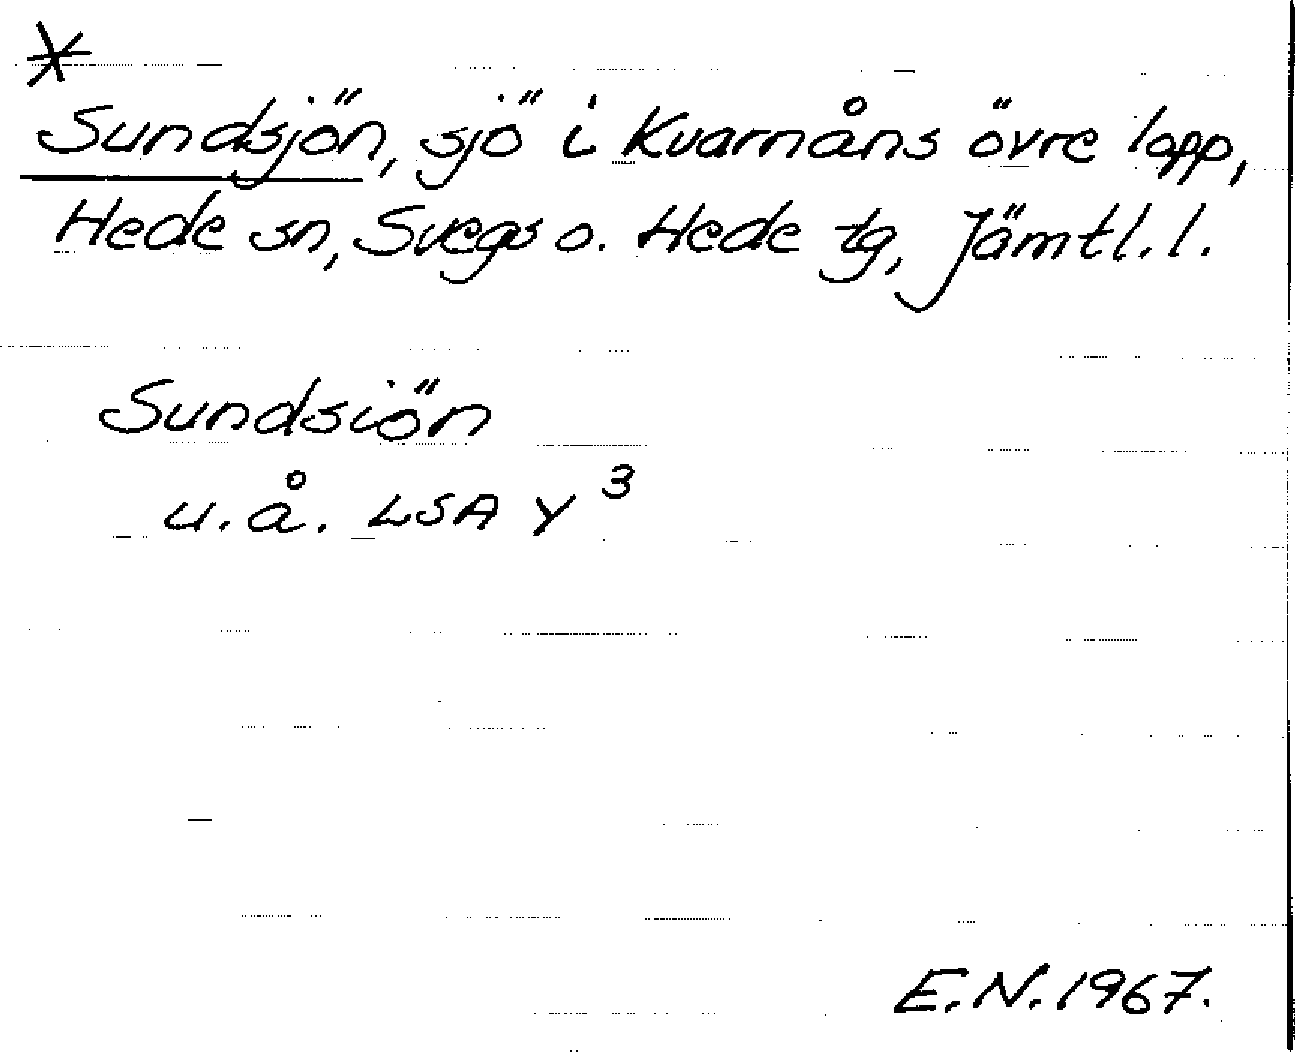 *
Sundsjön, sjö i Kvarnåns övre lopp,
Hede sn, Svegs o. Hede tg, Jämtl. l.
Sundsiön
u.å. LSA Y 3
E.N. 1967.